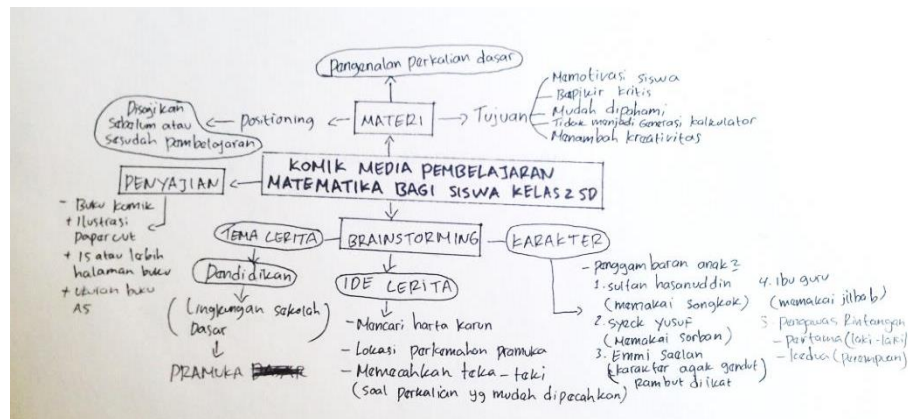 Pengenalan perkalian dasar
Disajikan
sebelum atau
sesudah pembelajaran
positioning
MATERI
Tujuan
Memotivasi siswa
- Berpikir kritis
- Mudah dipahami
- Tidak menjadi generasi kalkulator
Menambah kreativitas
KOMIK MEDIA PEMBELAJARAN
MATEMATIKA BAGI SISWA KELAS 2 SD
PENYAJIAN
- Buku komik
+ Ilustrasi
papercut
+ 15 atau lebih
halaman buku
+ Ukuran buku
A5
TEMA CERITA
Pendidikan
(Lingkungan sekolah
Dasar)
PRAMUKA
BRAINSTORMING
IDE CERITA
- Mencari harta karun
- Lokasi perkemahan pramuka
- Memecahkan teka-teki
(soal perkalian yg mudah dipecahkan)
KARAKTER
- penggambaran anak2
1. sultan hasanuddin
(memakai songkok)
2. syeck yusuf
(Memakai sorban)
3. Emmi saelan
(karakter agak gendut
rambut diikat)
4. ibu guru
(memakai jilbab)
5 Pengawas Rintangan
- pertama (laki-laki)
- kedua (perempuan)